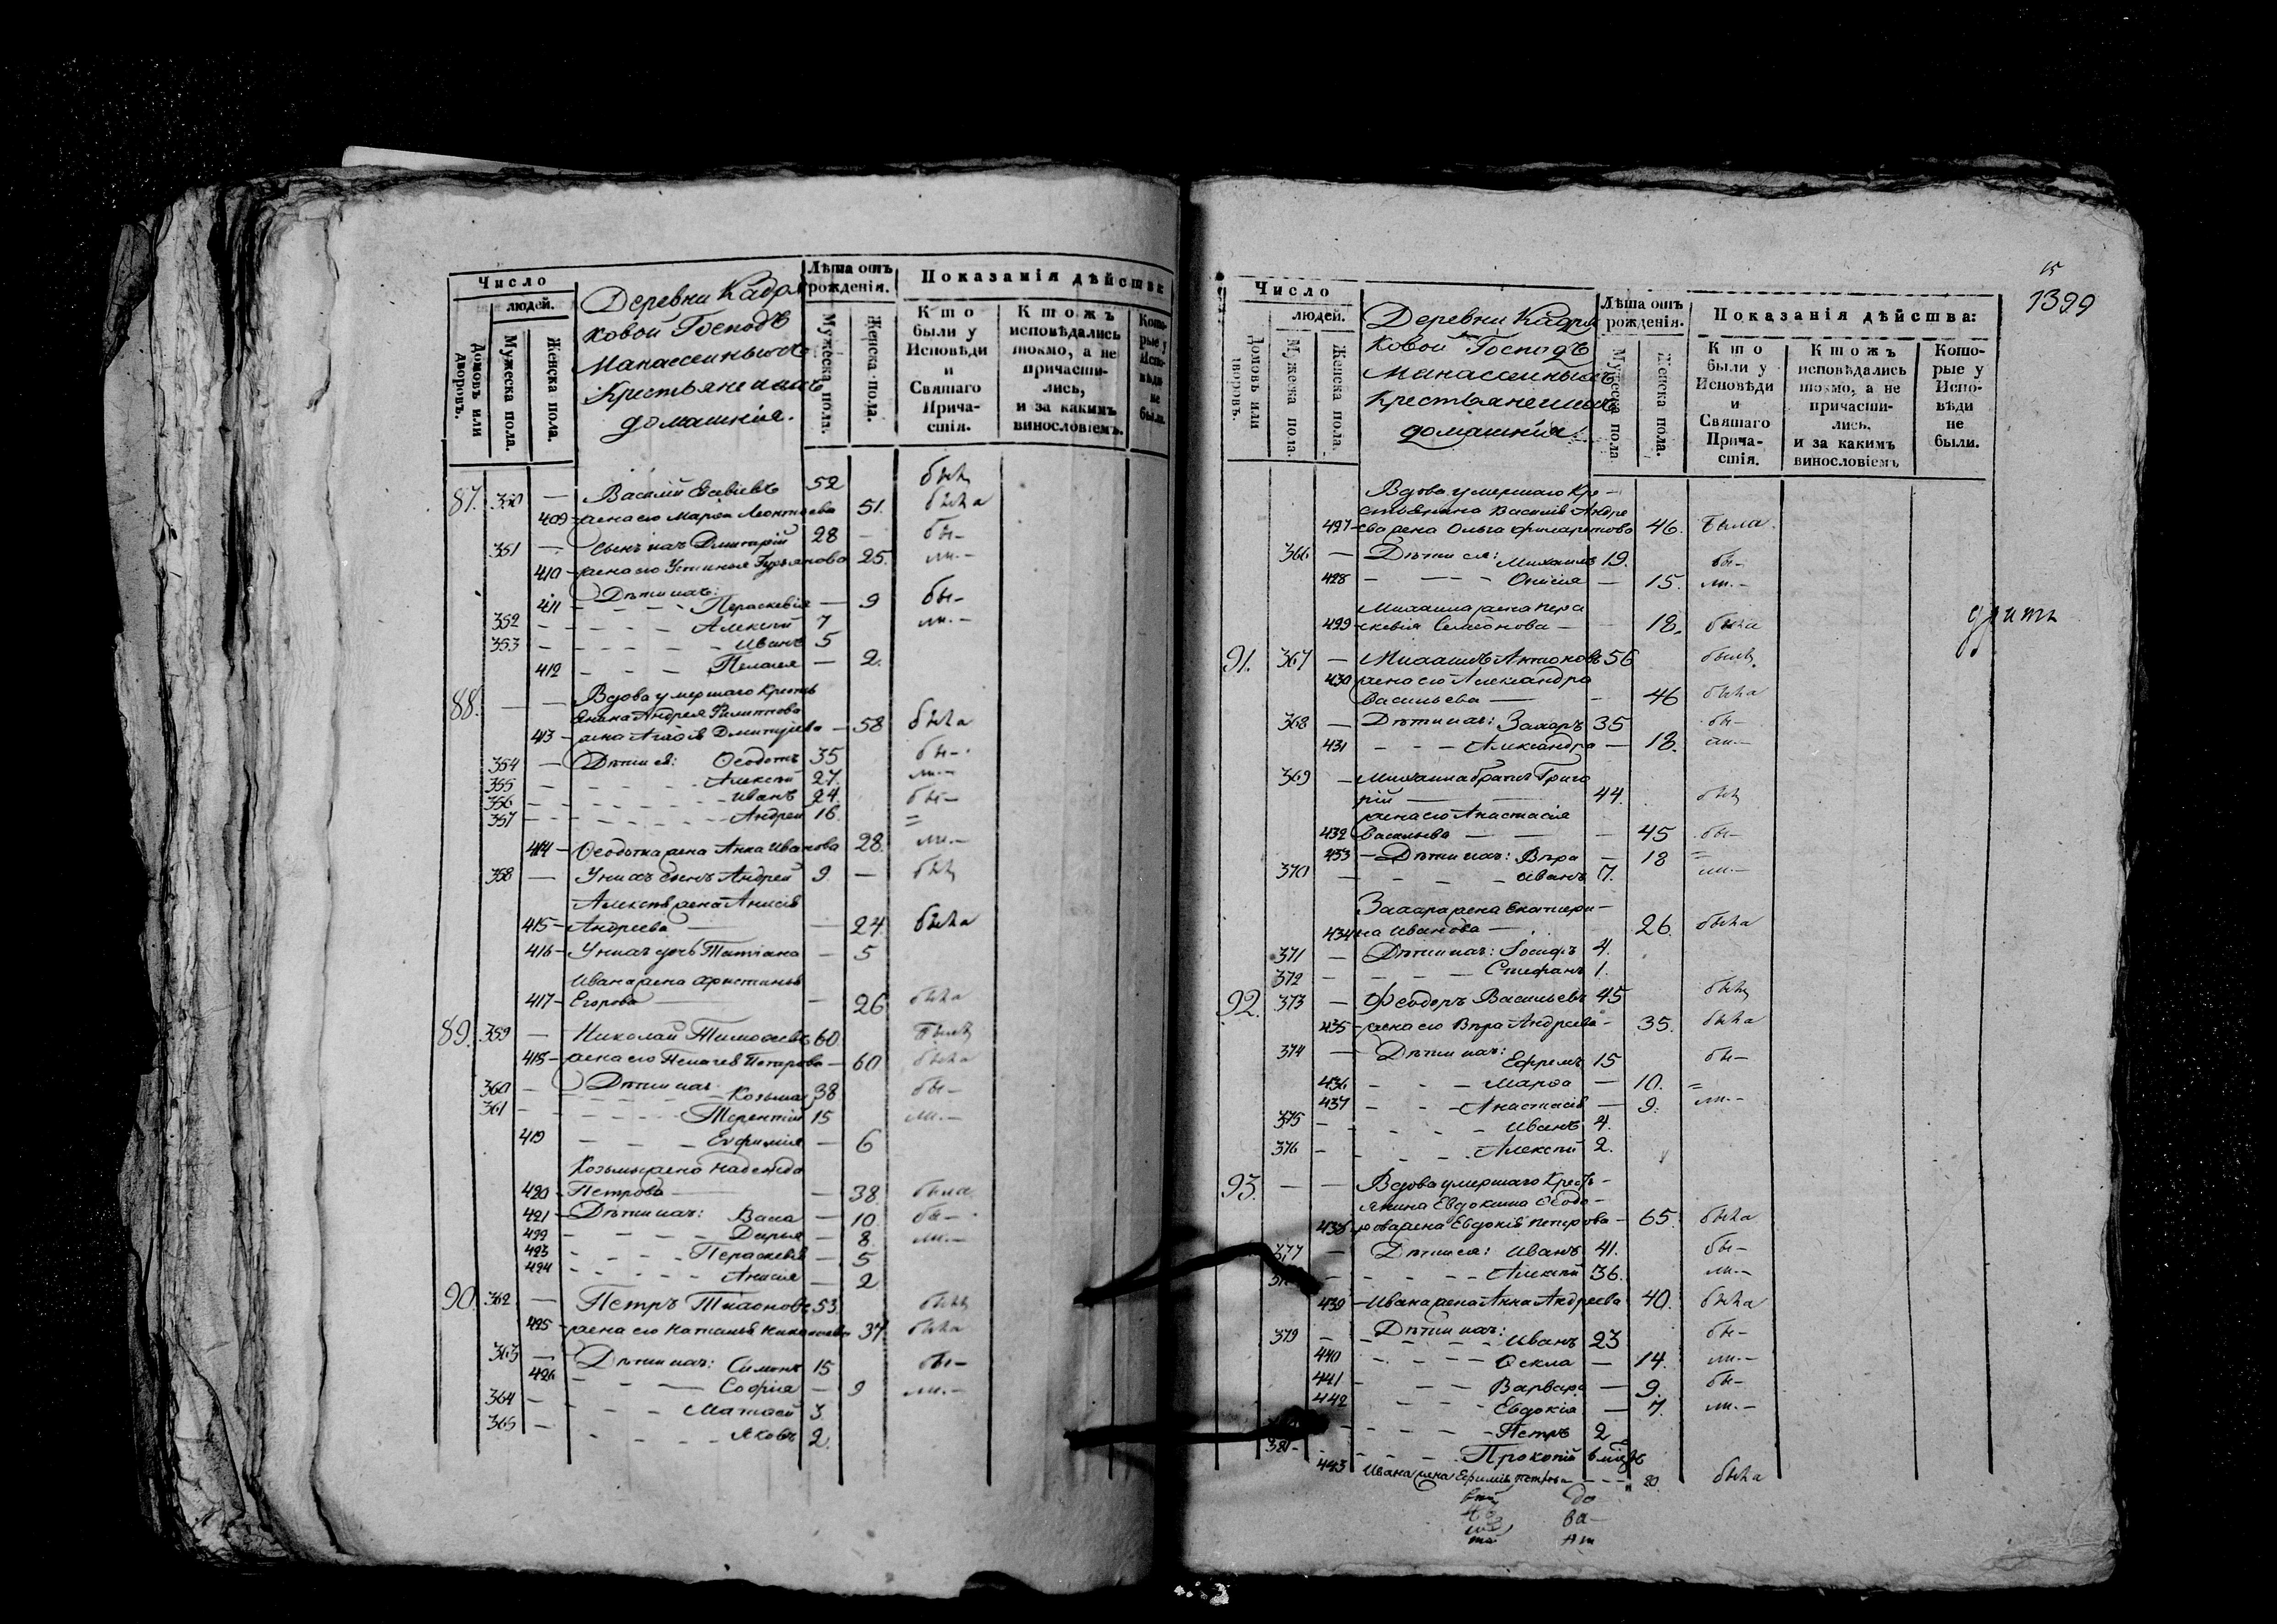 Число
людей.
Домовъ или дворовъ.
Мужеска пола.
Женска пола.
Деревни Кадря
ковой Господъ
Манассеиныхъ
Крестьяне и ихъ
домашнiя.
Лѣта отъ рожденiя.
Мужеска пола.
Женска пола.
Показанiя дѣйства
Кто были у Исповѣди и Святаго Причастiя.
Ктожъ исповѣдались токмо, а не причастились, и за какимъ винословiемъ.
Которые у Исповѣди не были.
87. 350 — Василiй 52 былъ
409 — жена его Марѳа Леонтьева 51. была
351 — сынъ ихъ Димитрiй 28 — бы—
410 — жена его Устинья Гурьянова 25. ли.—
Дѣти ихъ:
411 — Параскевiя — 9 бы—
352 Алексѣй 7 ли.—
353 Иванъ 5
412 Пелагея — 2.
88. — — Вдова умершаго Кресть
янина Андрея Филиппова
413 — жена Агаѳiя Дмитрiева — 58 была
354 — Дѣти ея: Ѳеодотъ 35 бы—
355 Алексѣй 27. ли.—
356 Иванъ 24. бы—
357 Андрей 16. =
414 — Ѳеодота жена Анна Иванова 28. ли.—
358 — У нихъ сынъ Андрей 9 — былъ
Алексѣя жена Анисiя
415 — Андреева — 24 была
416 — У нихъ дочь Татiана — 5
Ивана жена Христинья
417 — Егорова — 26 была
89. 359 — Николай Тимоѳеевъ 60 былъ
418 — жена его Пелагея Петрова — 60 была
360 — Дѣти ихъ: Козьма 38 бы—
361 — Терентiй 15 ли.—
419 Евфимiя — 6
Козьмы жена Надежда
420 — Петрова — 38. была
421 — Дѣти ихъ: Васса — 10 бы—
422 Дарья — 8. ли.—
423 Параскевiя — 5
424 Анисiя — 2
90. 362 — Петръ Тихоновъ 53. былъ
425 — жена его Наталья Николаева 37 была
363 — Дѣти ихъ: Симонъ 15 бы—
426 София — 9 ли.—
364 — Матѳей 3.
365 — Яковъ 2.
15
1399
Число
людей.
Домовъ или дворовъ.
Мужеска пола.
Женска пола.
Деревни Кадря
ковой Господъ
Манассеиныхъ
Крестьяне и ихъ
домашнiя.
Лѣта отъ рожденiя.
Мужеска пола
Женска пола.
Показанiя дѣйства:
Кто были у Исповѣди и Святаго Причастiя.
Ктожъ исповѣдались токмо, а не причастились, и за какимъ винословiемъ
Которые у Исповѣди не были.
Вдова умершаго Кре—
стьянина Василiя Андре
427 — ева жена Ольга Филаретова 46. была
366 — Дѣти ея: Михаилъ 19. бы—
428 — Онисiя — 15. ли.—
Михаила жена Пара
429 — скевiя Семенова — 18. была
дрить
91. 367 — Михаилъ Антоновъ 56 былъ
430 жена его Александра
Васильева — 46 была
368 — Дѣти ихъ: Захаръ 35 бы—
431 Александра — 18. ли.—
369 — Михаила братъ Григо
рiй — 44. былъ
жена его Анастасiя
432 Васильева — 45 бы—
433 — Дѣти ихъ: Вѣра — 18 =
370 — Иванъ 7. ли.—
Захара жена Екатери—
434 на Иванова — 26. была
371 — Дѣти ихъ: Iосифъ 4.
372 Стефанъ 1.
92. 373 — Ѳеодоръ Васильевъ 45 былъ
435 — жена его Вѣра Андреева — 35. была
374 — Дѣти ихъ: Ефремъ 15 бы—
436 Марѳа — 10. =
437 Анастасiя — 9. ли.—
375 — Иванъ 4.
376 — Алексѣй 2.
93. — — Вдова умершаго Кресть—
янина Евдокима Ѳеодо—
438 — рова жена Евдокiя Петрова — 65. была
377 — Дѣти ея: Иванъ 41. бы—
Алексѣй 36. ли.—
439 — Ивана жена Анна Андреева 40. была
379 — Дѣти ихъ: Иванъ 23 бы—
440 Ѳекла — 14. ли.—
441 Варвара — 9. бы—
442 Евдокiя — 7. ли.—
Петръ 2
381 — Прокопiй 6 мѣсцъ
443 Ивана жена Ефимiя Петрова — — 20. была
до
ва—